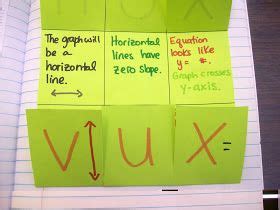 The graph will
be a
horizontal
line.
Horizontal
lines have
zero slope.
Equation
looks like
y= #.
Graph crosses
y-axis.
V U X =